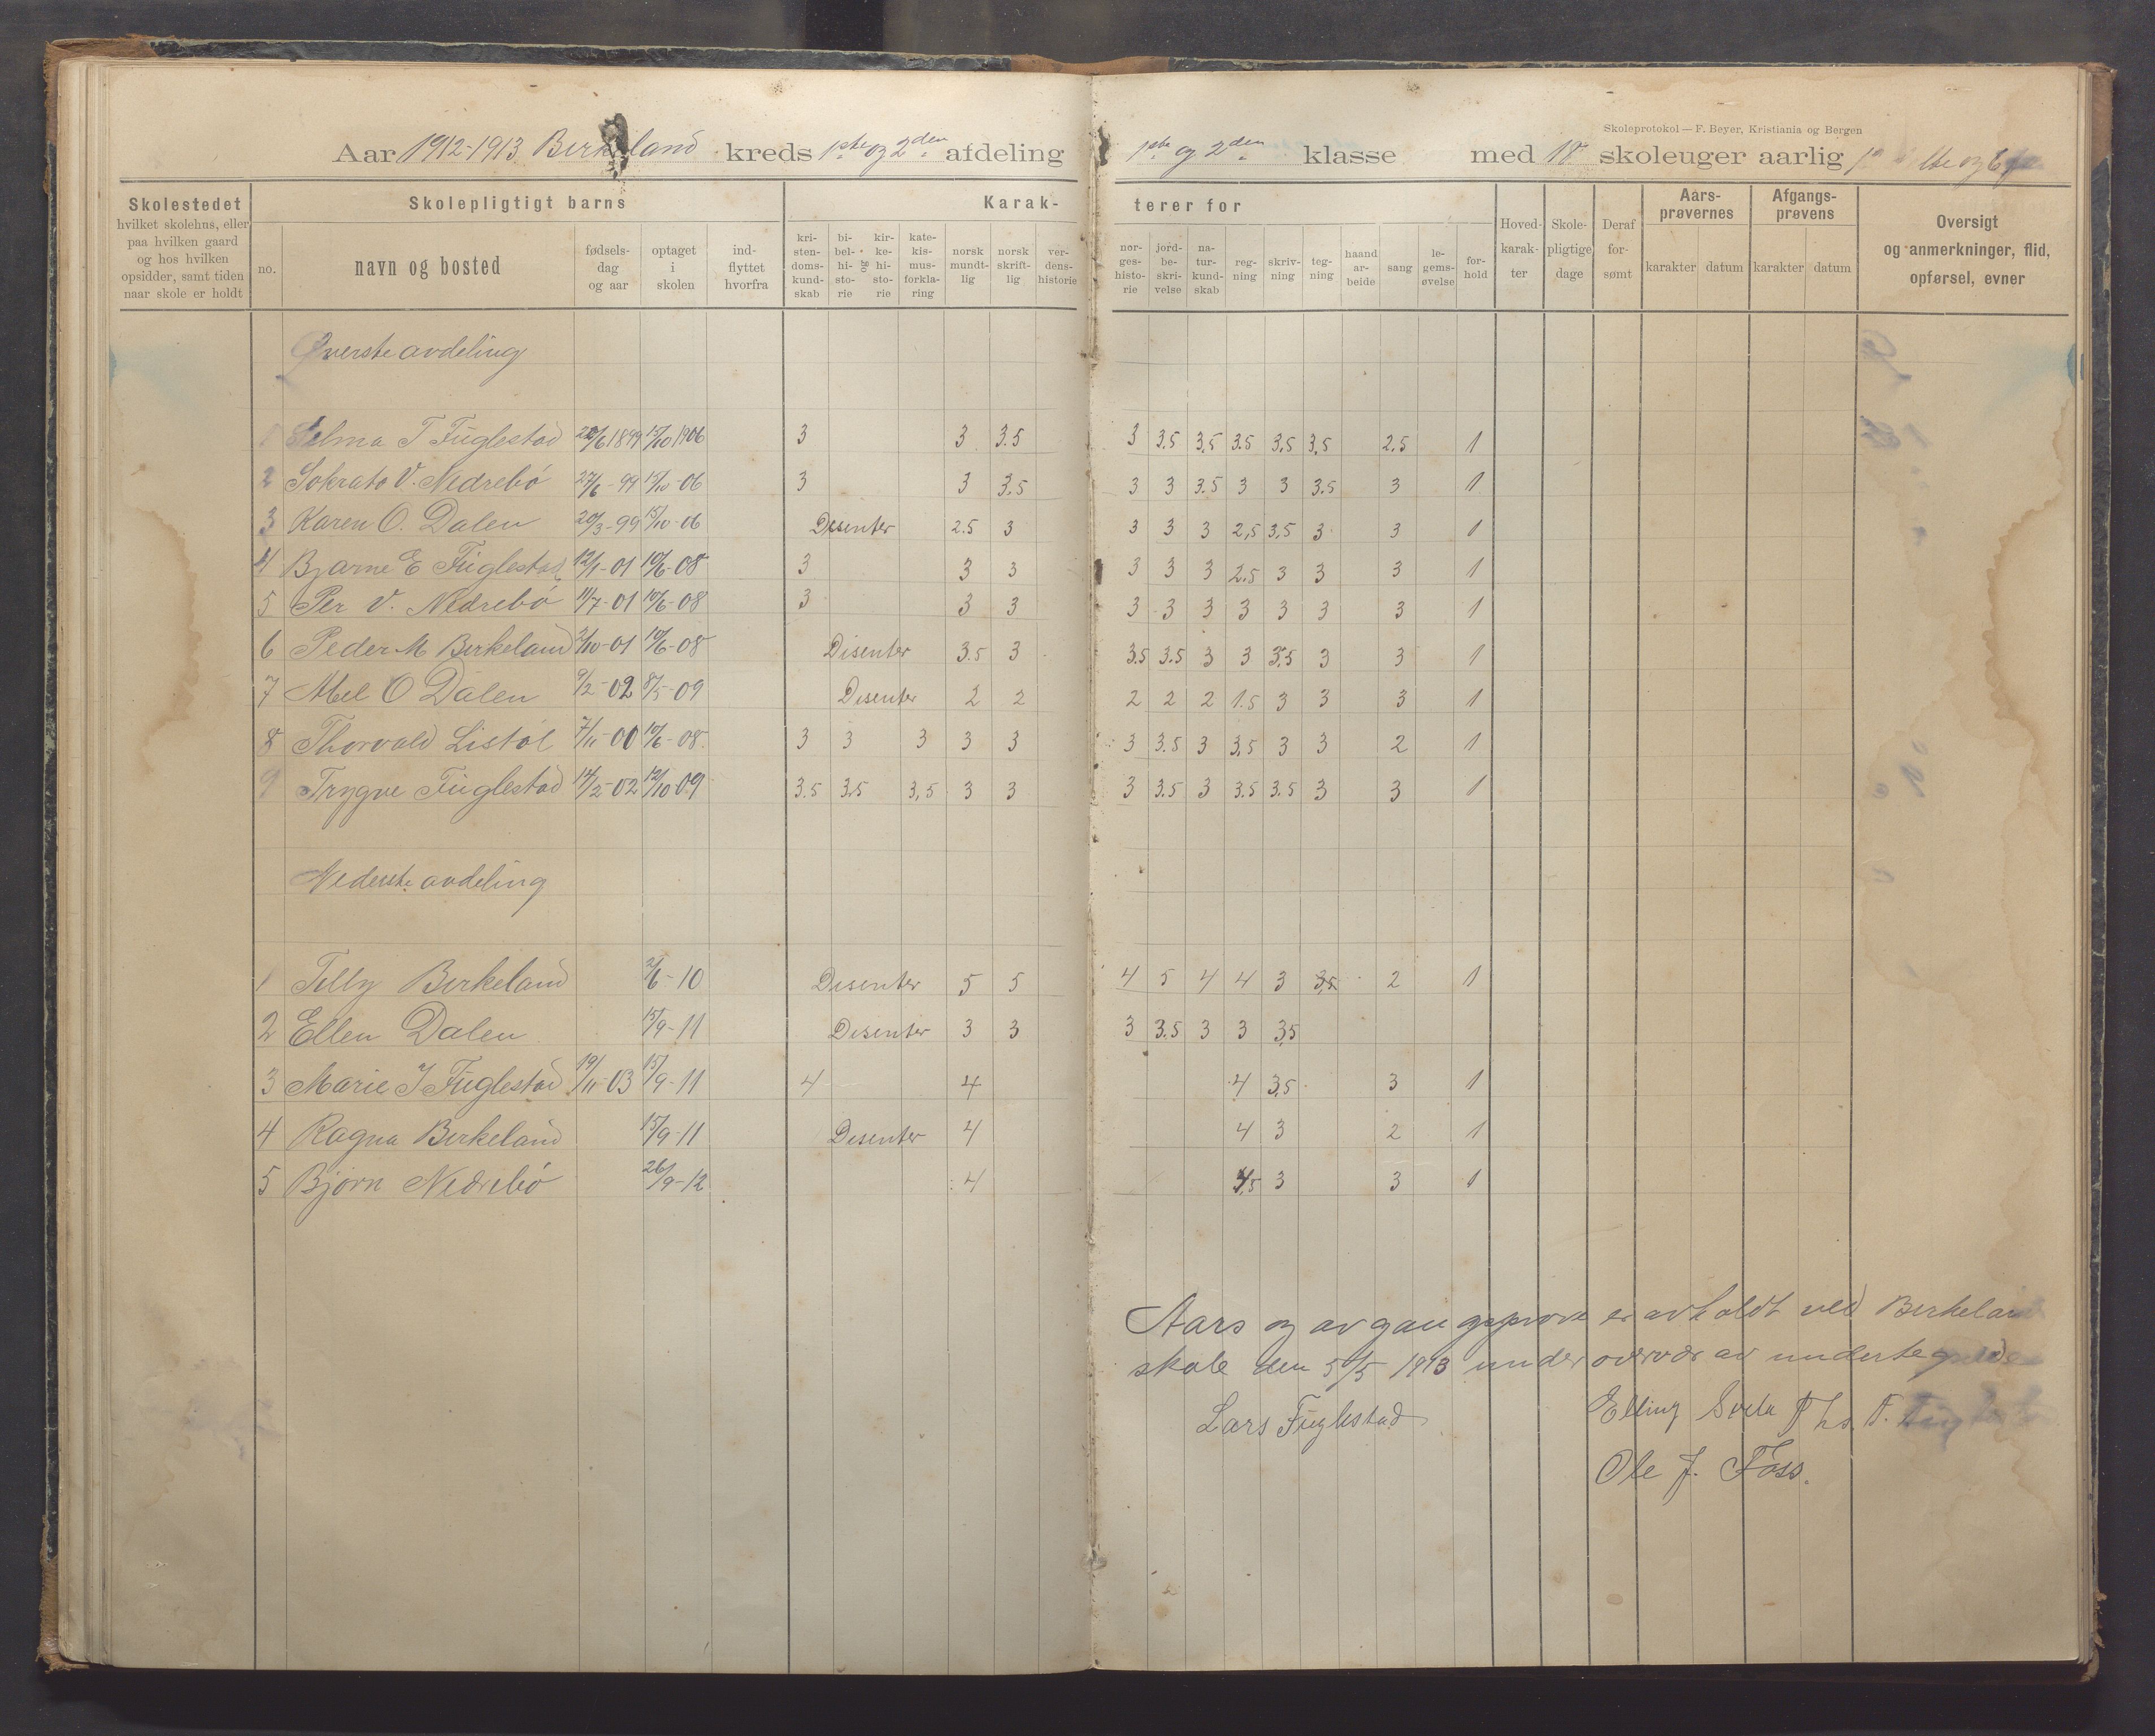 Skoleprotokol — F. Beyer, Kristiania og Bergen
Aar 1912-1913 Birkeland kreds 1ste og 2den afdeling 1ste og 2den klasse med 18 skoleuger aarlig
Skolestedet
hvilket skolehns, eller
paa hvilken gaard
og hos hvilken
opsidder, samt tiden
naar skole er holdt
Skolepligtigt barns
no.
navn og bosted
fødsels-
dag
og aar
optaget
i
skolen
ind-
flyttet
hvorfra
Karak-
kri-
sten-
doms-
kund-
skab
bi-
bel-
hi-
sto-
rie
og
kir-
ke-
hi-
sto-
rie
kate-
kis-
mus-
forkla-
ring
norsk
mundt-
lig
norsk
skrift-
lig
ver-
dens-
historie
terer for
nor-
ges-
histo-
rie
jord-
be-
skri-
velse
na-
tur-
kund-
skab
reg-
ning
skriv-
ning
teg-
ning
haand
ar-
beide
sang
le-
gems-
øvelse
for-
hold
Hoved-
karak-
ter
Skole-
pligtige
dage
Deraf
for-
sømt
Aars-
prøvernes
karakter datum
Afgangs-
prøvens
karakter datum
Oversigt
og anmerkninger, flid,
opførsel, evner
Øverste avdeling
1 Selma T Fuglestad 22/6 1899 15/10 1906 3 3 3.5 3 3.5 3,5 3.5 3,5 3,5 2.5 1
2 Sokrato V. Nedrebö 27/6-99 15/10-06 3 3 3.5 3 3 3.5 3 3 3.5 3 1
3 Karen O. Dalen 20/3-99 15/10-06 Disenter 2.5 3 3 3 3 2,5 3,5 3 3 1
4 Bjarne E Fuglestad 12/1-01 10/6-08 3 3 3 3 3 3 2.5 3 3 3 1
5 Per V. Nedrebö 11/7-01 10/6-08 3 3 3 3 3 3 3 3 3 3 1
6 Peder M Birkeland 2/10-01 10/6-08 Disenter 3.5 3 3.5 3.5 3 3 3,5 3 3 1
7 Mel O Dalen 9/2-02 8/5-09 Disenter 2 2 2 2 2 1.5 3 3 3 1
8 Thorvald Listøl 7/11-00 10/6-08 3 3 3 3 3 3 3.5 3 3,5 3 3 2 1
9 Trygve Fuglestad 14/2-02 12/10 09 3.5 3,5 3,5 3 3 3 3.5 3 3.5 3.5 3 3 1
Nederste avdeling
1 Tilly Birkeland 2/6-10 Disenter 5 5 4 5 4 4 3 3,5 2 1
2 Ellen Dalen 15/9-11 Disenter 3 3 3 3.5 3 3 3,5
3 Marie J Fuglestad 19/11-03 15/9-11 4 4 4 3,5 3 1
4 Ragna Birkeland 15/9-11 Disenter 4 4 3 2 1
5 Bjørn Nedrebö 26/9-12 4 3,5 3 3 1
Aars og avgangsprøve er avholdt ved Birkeland
skole den 5/5 1913 under overvær av undertegnede
Lars Fuglestad Elling Svela Ths. T.
Ole J. Foss.